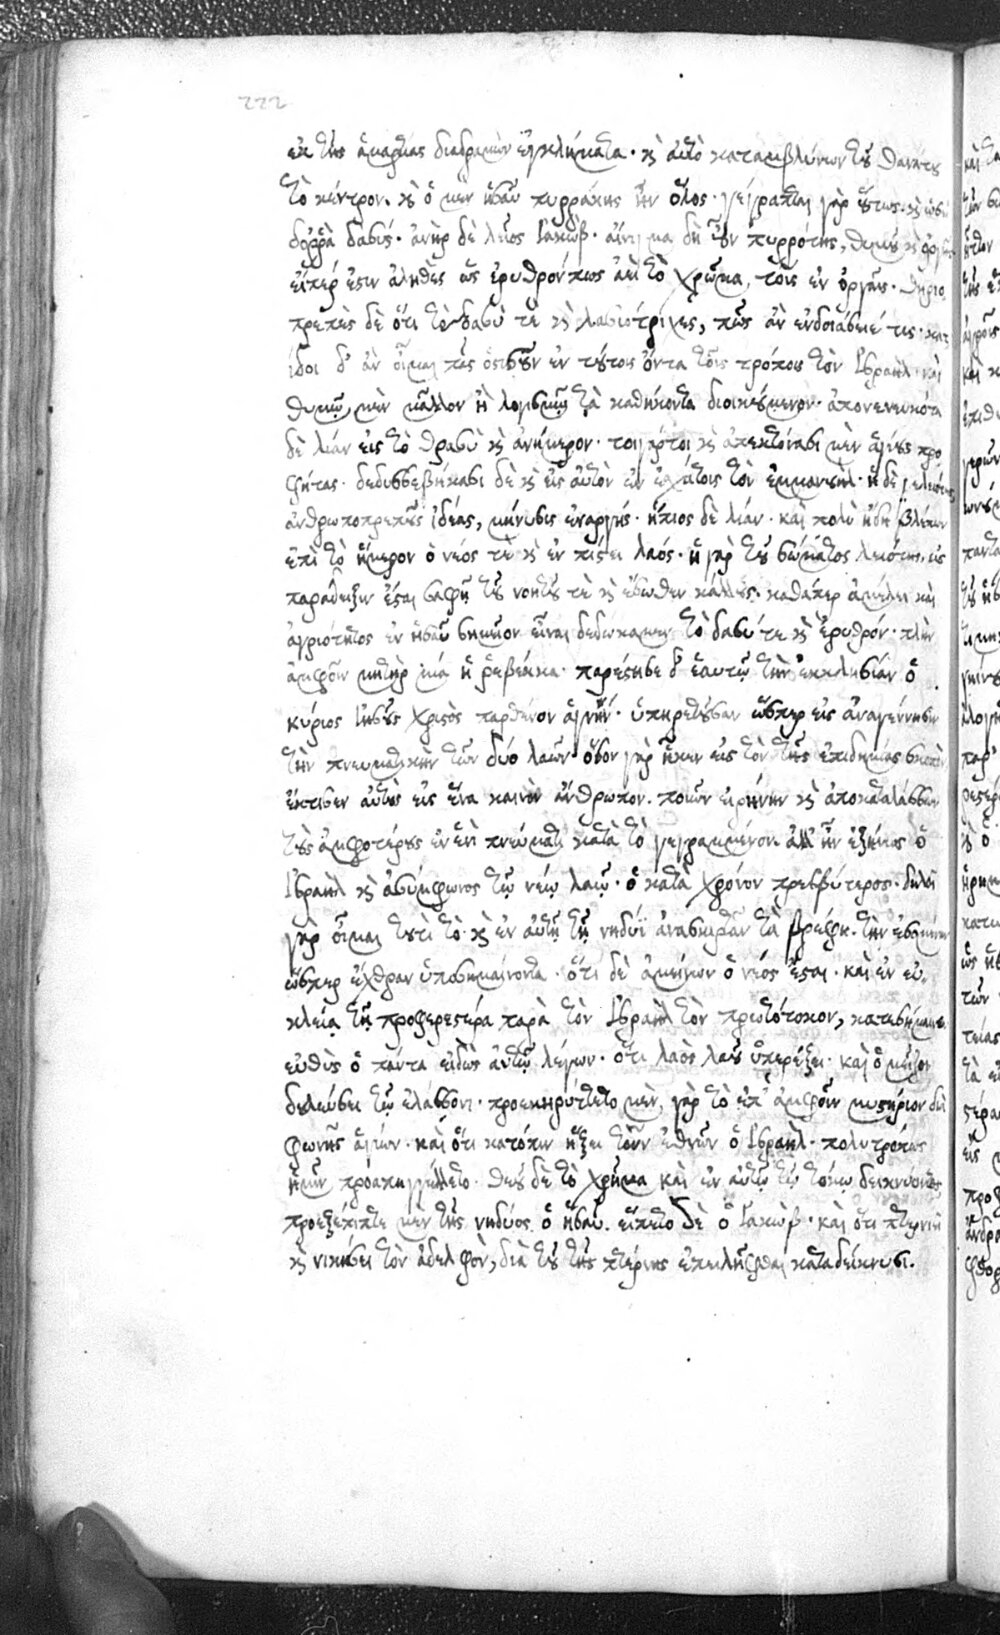 222
ἐκ τῆς ἁμαρτίας διαδραμὼν ἐγκλήματα· κ αὐτὸ καταμβλύνων τοῦ θανάτου
τὸ κέντρον. κ ὁ μὲν ἡσαῦ πυρράκης ἦν ὅλος· γέγραπται γὰρ οὕτως· κ ὡσεὶ
δορρὰ δασύς· ἀνὴρ δὲ λεῖος ἰακώβ· αἴνιγμα δὴ οὖν πυρρότης, θυμοῦ κ ὀργῆς
εἴπερ ἐστιν ἀληθὲς ὡς ἐρυθρόν πως ἀεὶ τὸ χρῶμα, τοῖς ἐν ὀργαῖς. θηριο
πρεπὲς δὲ ὅτι τὸ δασύ τε κ λασιότριχες, πῶς ἂν ἐνδοιάσειέ τις· κατ
ίδοι δ' ἂν οἶμαι πᾶς ὁστισοῦν ἐν τούτοις ὄντα τοῖς τρόποις τὸν ἰσραήλ· καὶ
θυμῷ, μὲν μᾶλλον ἢ λογισμῷ τὰ καθήκοντα διοικούμενον· ἀπονενευκότα
δὲ λίαν εἰς τὸ θρασὺ κ ἀνήμερον· τοιγάρτοι κ ἀπεκτόνασι μὲν ἁγίους προ
φήτας· δεδυσσεβήκασι δὲ κ εἰς αὐτὸν ἐν ἐσχάτοις τὸν ἐμμανουήλ· ἡ δὲ λειότης
ἀνθρωποπρεποῦς ἰδέας, μήνυσις ἐναργής· ἥπιος δὲ λίαν· καὶ πολὺ ἤδη βλέπων
ἐπὶ τὸ ἥμερον ὁ νέος τε κ ἐν πίστει λαός· ἡ γὰρ τοῦ σώματος λειότης, εἰς
παράδειξιν ἔσται σαφῆ τοῦ νοητοῦ τε κ ἔσωθεν κάλλους. καθάπερ ἀμέλει καὶ
ἀγριότητος ἐν ἡσαῦ σημεῖον εἶναι δεδώκαμεν τὸ δασύ τε κ ἐρυθρόν· πλὴν
ἀμφοῖν μήτηρ μία ἡ ῥεβέκκα· παρέστησε δ' ἑαυτῷ τὴν ἐκκλησίαν ὁ
κύριος ἰησοῦς χριστὸς παρθένον ἁγνήν· ὑπηρετοῦσαν ὥσπερ εἰς ἀναγέννησιν
τὴν πνευματικὴν τῶν δύο λαῶν· ὅσον γὰρ ἧκεν εἰς τὸν τῆς ἐπιδημίας σκοπὸν
ἔκτισεν αὐτοὺς εἰς ἕνα καινὸν ἄνθρωπον. ποιῶν εἰρήνην κ ἀποκαταλάσσων
τοὺς ἀμφοτέρους ἐν ἑνὶ πνεύματι κατὰ τὸ γεγραμμένον. ἀλλ' ἦν ἐξήνιος ὁ
ἰσραὴλ κ ἀσύμφωνος τῷ νέῳ λαῷ· ὁ κατὰ χρόνον πρεσβύτερος· δηλοῖ
γὰρ οἶμαι τουτὶ τὸ· κ ἐν αὐτῇ τῇ νηδύϊ ἀνασκιρτᾶν τὰ βρέφη. τὴν ἐσομένην
ὥσπερ ἔχθραν ὑποσημαίνοντα· ὅτι δὲ ἀμείνων ὁ νέος ἔσται· καὶ ἐν εὐ
κλείᾳ τῇ προφερεστέρᾳ παρὰ τὸν ἰσραὴλ τὸν πρωτότοκον, κατεσήμαινε
εὐθὺς ὁ πάντα εἰδὼς αὐτῷ λέγων· ὅτι λαὸς λαοῦ ὑπερέξει· καὶ ὁ μείζων
δουλεύσει τῷ ἐλάσσονι· προεκηρύττετο μὲν, γὰρ τὸ ἐπ' ἀμφοῖν μυστήριον διὰ
φωνῆς ἁγίων· καὶ ὅτι κατόπιν ἥξει τῶν ἐθνῶν ὁ ἰσραήλ· πολυτρόπως
ἡμῖν προαπηγγέλλετο· θεοῦ δὲ τὸ χρῆμα καὶ ἐν αὐτῷ τῷ τόκῳ δεικνύοντος
προεξέπιπτε μὲν τῆς νηδύος ὁ ἡσαῦ. εἵπετο δὲ ὁ ἰακώβ· καὶ ὅτι πτερνιεῖ
κ νικήσει τὸν ἀδελφὸν, διὰ τοῦ τῆς πτέρνης ἐπειλῆφθαι καταδείκνυσι.